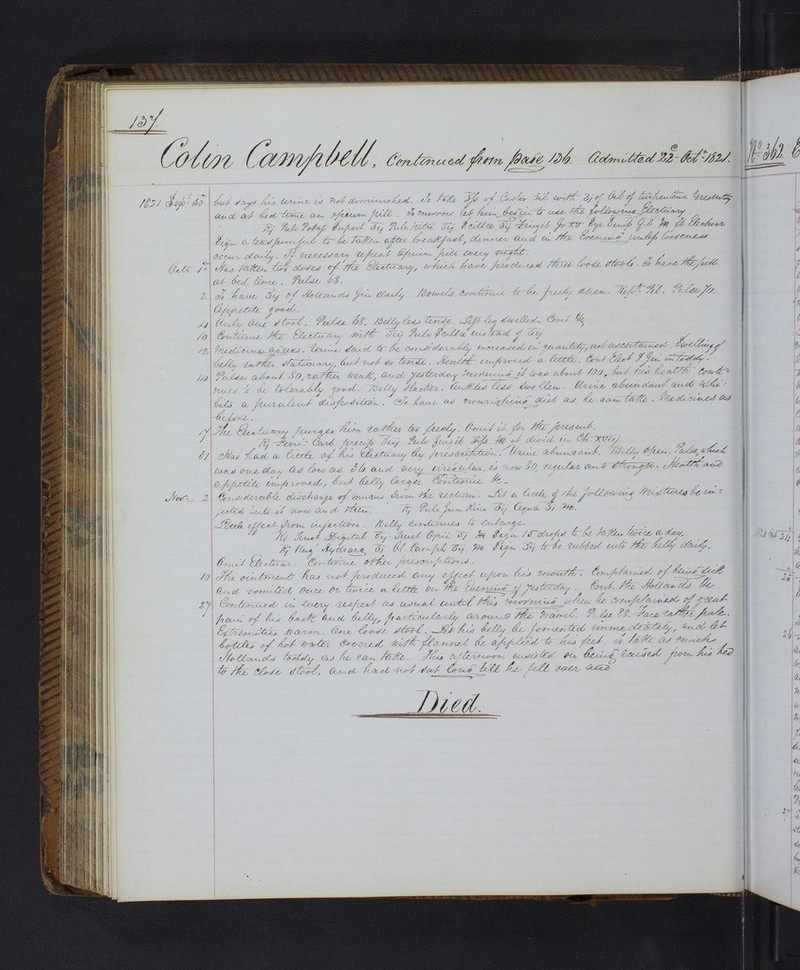 137
Colin Campbell, Continued from page 136 Admitted 22 Oct. 1821.
1821 Sept. 30 but says his urine is not diminished. To take of Castor Oil with of Oil of turpentine presently
and at bed time an opium pill. To morrow let him begin to use the following Electuary
Supert Pulv Scilla Zingib Gr XV Electuar
Sign a teaspoonful to be taken after breakfast, dinner and in the Evening unless looseness
occur daily. If necessary repeat Opium pill every night.
Octr. 1 Has taken two doses of the Electuary, which have produced three loose stools. To have the pill
at bed time. Pulse 68.
2 To have of Hollands Gin daily. Bowels continue to be freely open. Pil. Pulse 70.
Appetite good.
4 Only one stool. Pulse 68. Belly less tense. leg swelled. Cont
10 Continue the Electuary with Pulv Scilla instead of
12 Medicine agrees. Urine said to be considerably increased in quantity, not ascertained Swelling of
belly rather stationary, but not so tense. Health improved a little. Cont Elect & Gin in toddy.
14 Pulse about 80, rather weak, and yesterday morning it was about but his health conti-
nues to be tolerably good. Belly slacker. Ankles less swollen. Urine abundant and exhi-
bits a purulent disposition. To have as nourishing diet as he can take. Medicines as
before.
17 The Electuary purges him rather too freely. Omit it for the present.
Ferri Carb precip Pulv Zingib divid in Ch. XVI
31 Has had a little of his Electuary by prescription. Urine abundant. Belly open. Pulse, which
was one day as low as 36 and very irregular, is now 80, regular and stronger. Health and
appetite improved, but belly larger. Continue
Novr. 2 Considerable discharge of mucus from the rectum. Let a little of the following Mixture be in-
jected into it now and then. Pulv Gum Kino Aqua
Little effect from injection. Belly continues to enlarge.
Tinct Digital Tinct Opii Sign 15 drops to be taken twice a day.
Ung Hydrarg Ol Camph Sign to be rubbed into the belly daily.
Omit Electuar. Continue other prescriptions.
19 The ointment has not produced any effect upon his mouth. Complained of being sick
and vomited once or twice a little on the Evening of yesterday. Cont the Hollands
27 Continued in every respect as usual until this morning when he complained of great
pain of his back and belly, particularly around the Navel. Pulse 88. Face rather pale.
Extremities warm. One loose stool. Let his belly be fomented immediately, and let
bottles of hot water covered with flannel be applied to his feet. To take as much
Hollands toddy as he can take. This afternoon insisted on being raised from his bed
to the close stool, and had not sat long till he fell over and
Died.
No. 362